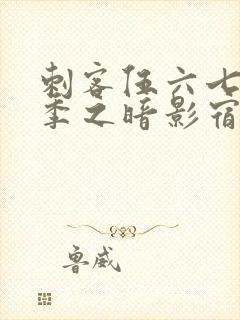 刺客伍六七
季之暗影宿
鲁威